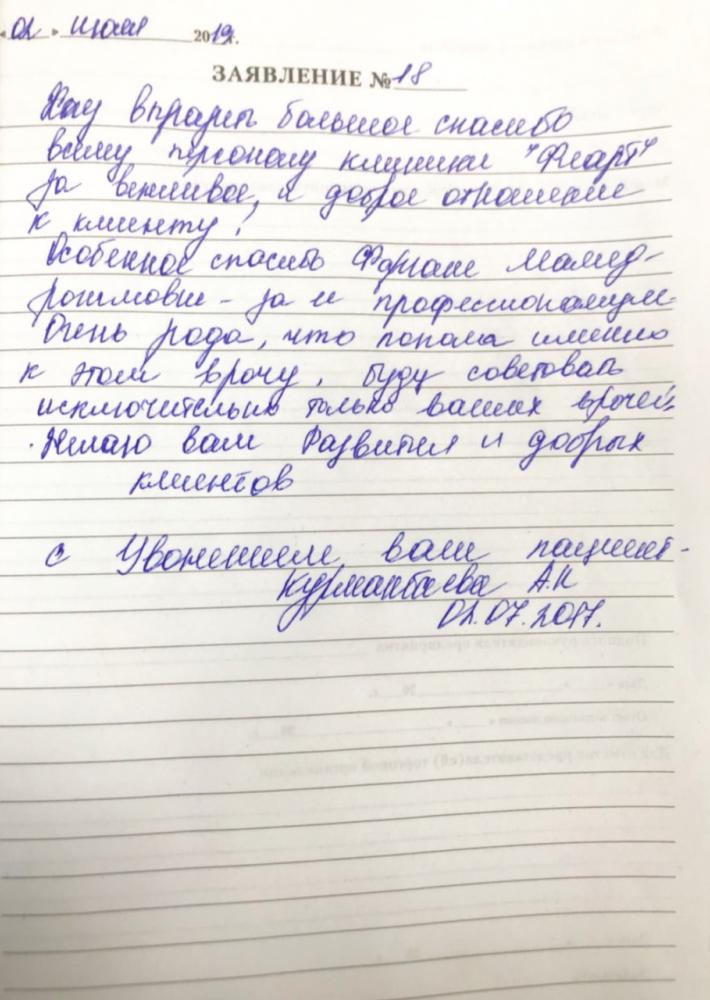 « 02 » июля 2019г.
ЗАЯВЛЕНИЕ № 18
Хочу выразить большое спасибо
всему персоналу клиники "Феарт"
за вежливое, и доброе отношение
к клиенту!
Особенное спасибо Фаргане Мамед-
рагимовне - за и профессионализм.
Очень рада, что попала именно
к этом врачу, буду советовать
исключительно только ваших врачей.
Желаю вам Развития и добрых
клиентов
с Уважением, ваш пациент-
Курманбаева А.К
02.07.2017.